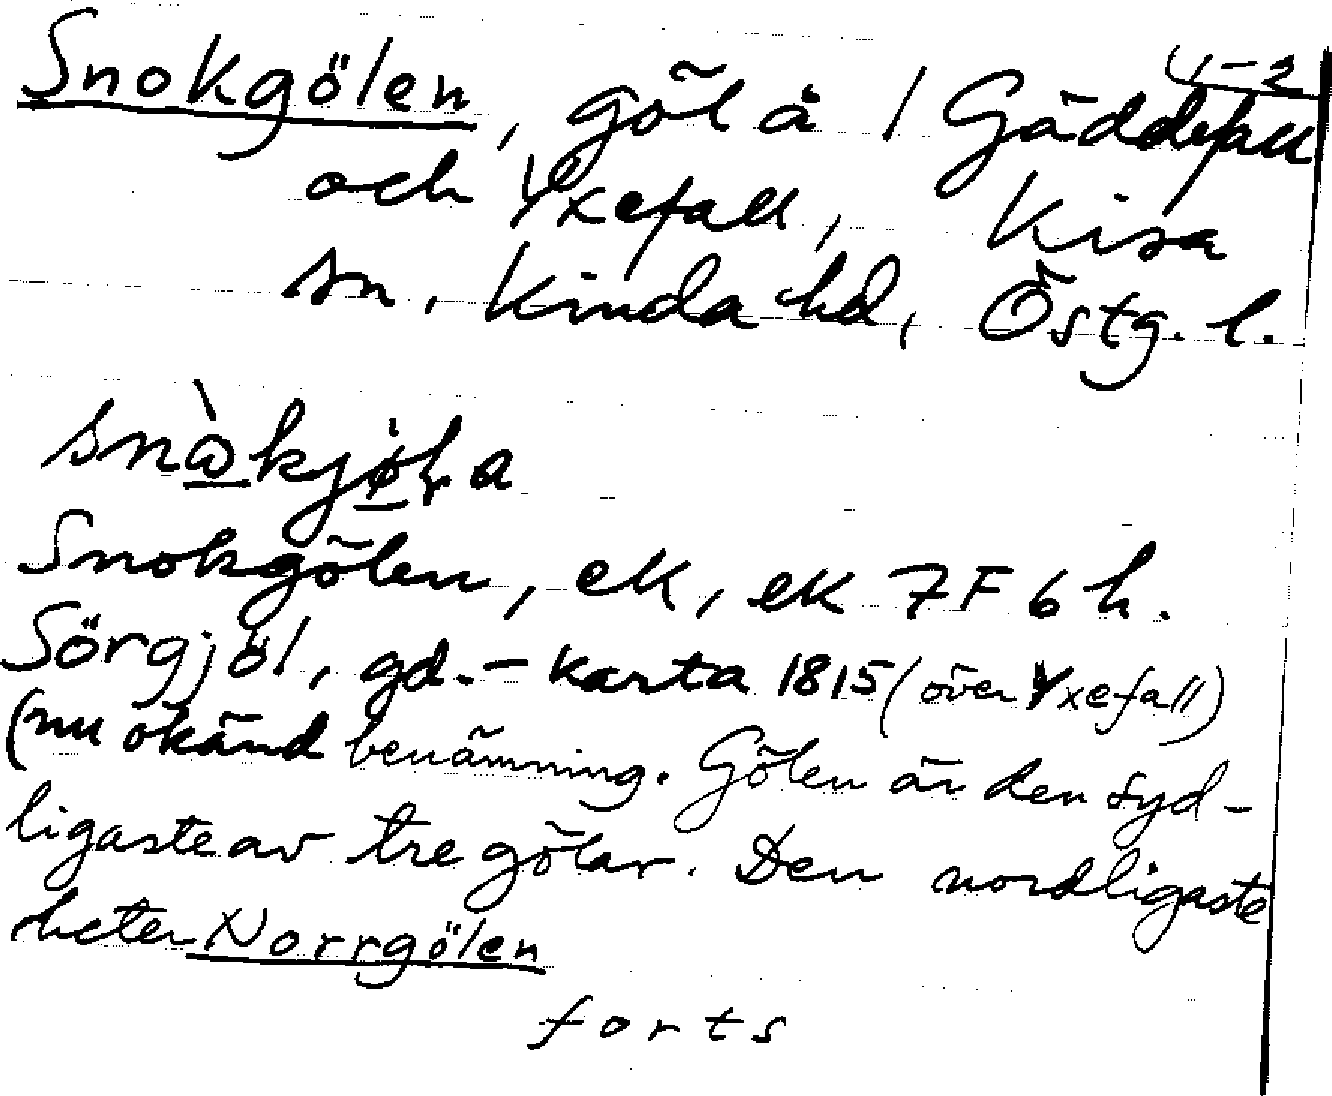 4-2
Snokgölen, göl å / Gäddefall
och Yxefall, Kisa
sn, Kinda hd, Östg. l.
Snokgölen, ek, ek 7F 6 h.
Sörgjöl, gd. - karta 1815 (över Yxefall)
(nu okänd benämning. Gölen är den syd-
ligaste av tre gölar. Den nordligaste
heter Norrgölen
forts